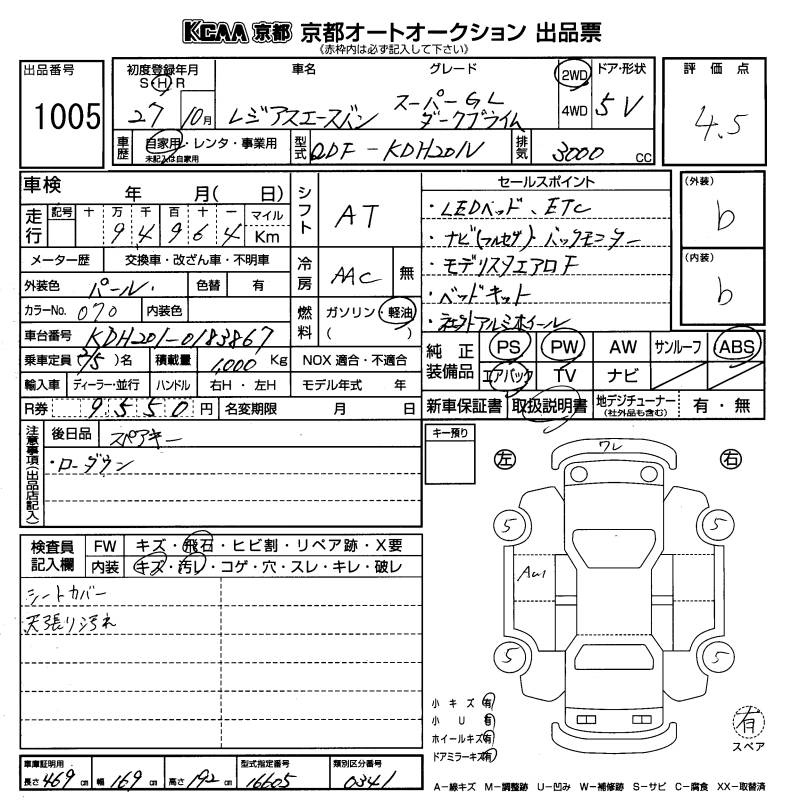 KCAA 京都 京都オートオークション 出品票
(赤枠内は必ず記入して下さい)
出品番号
1005
初度登録年月
S H R
27 10月
車名
レジアスエースバン
グレード
スーパーGL
ダークプライム
2WD
4WD
ドア・形状
5V
評価点
4.5
車歴
自家用・レンタ・事業用
未記入は自家用
型式
QDF-KDH201V
排気
3000 cc
車検 年 月( 日)
走行
記号 十 万 千 百 十 一 マイル
9 4 9 6 4 Km
メーター歴 交換車・改ざん車・不明車
外装色 パール 色替 有
カラーNo. 070 内装色
車台番号 KDH201-0183867
乗車定員 2/5)名 積載量 1,000 Kg
輸入車 ディーラー・並行 ハンドル 右H・左H
R券 9550円 名変期限 月 日
シフト AT
冷房 AAC 無
燃料 ガソリン・軽油
( )
NOX 適合・不適合
モデル年式 年
セールスポイント
・LEDヘッド、ETC
・ナビ(フルセグ)バックモニター
・モデリスタエアロF
・ベッドキット
・社外アルミホイール
(外装)
b
(内装)
b
純正装備品
PS PW AW サンルーフ ABS
エアバック TV ナビ
新車保証書 取扱説明書 地デジチューナー(社外品も含む) 有・無
注意事項(出品店記入)
後日品 スペアキー
・ローダウン
キー預り
検査員記入欄
FW キズ・飛石・ヒビ割・リペア跡・X要
内装 キズ・汚レ・コゲ・穴・スレ・キレ・破レ
シートカバー
天張り汚れ
左 右
ワレ
5 5
AW1
5 5
小キズ 有
小U 有
ホイールキズ 有
ドアミラーキズ 有
有
スペア
車庫証明用
長さ 469 cm 幅 169 cm 高さ 192 cm
型式指定番号
16605
類別区分番号
0341
A-線キズ M-調整跡 U-凹み W-補修跡 S-サビ C-腐食 XX-取替済